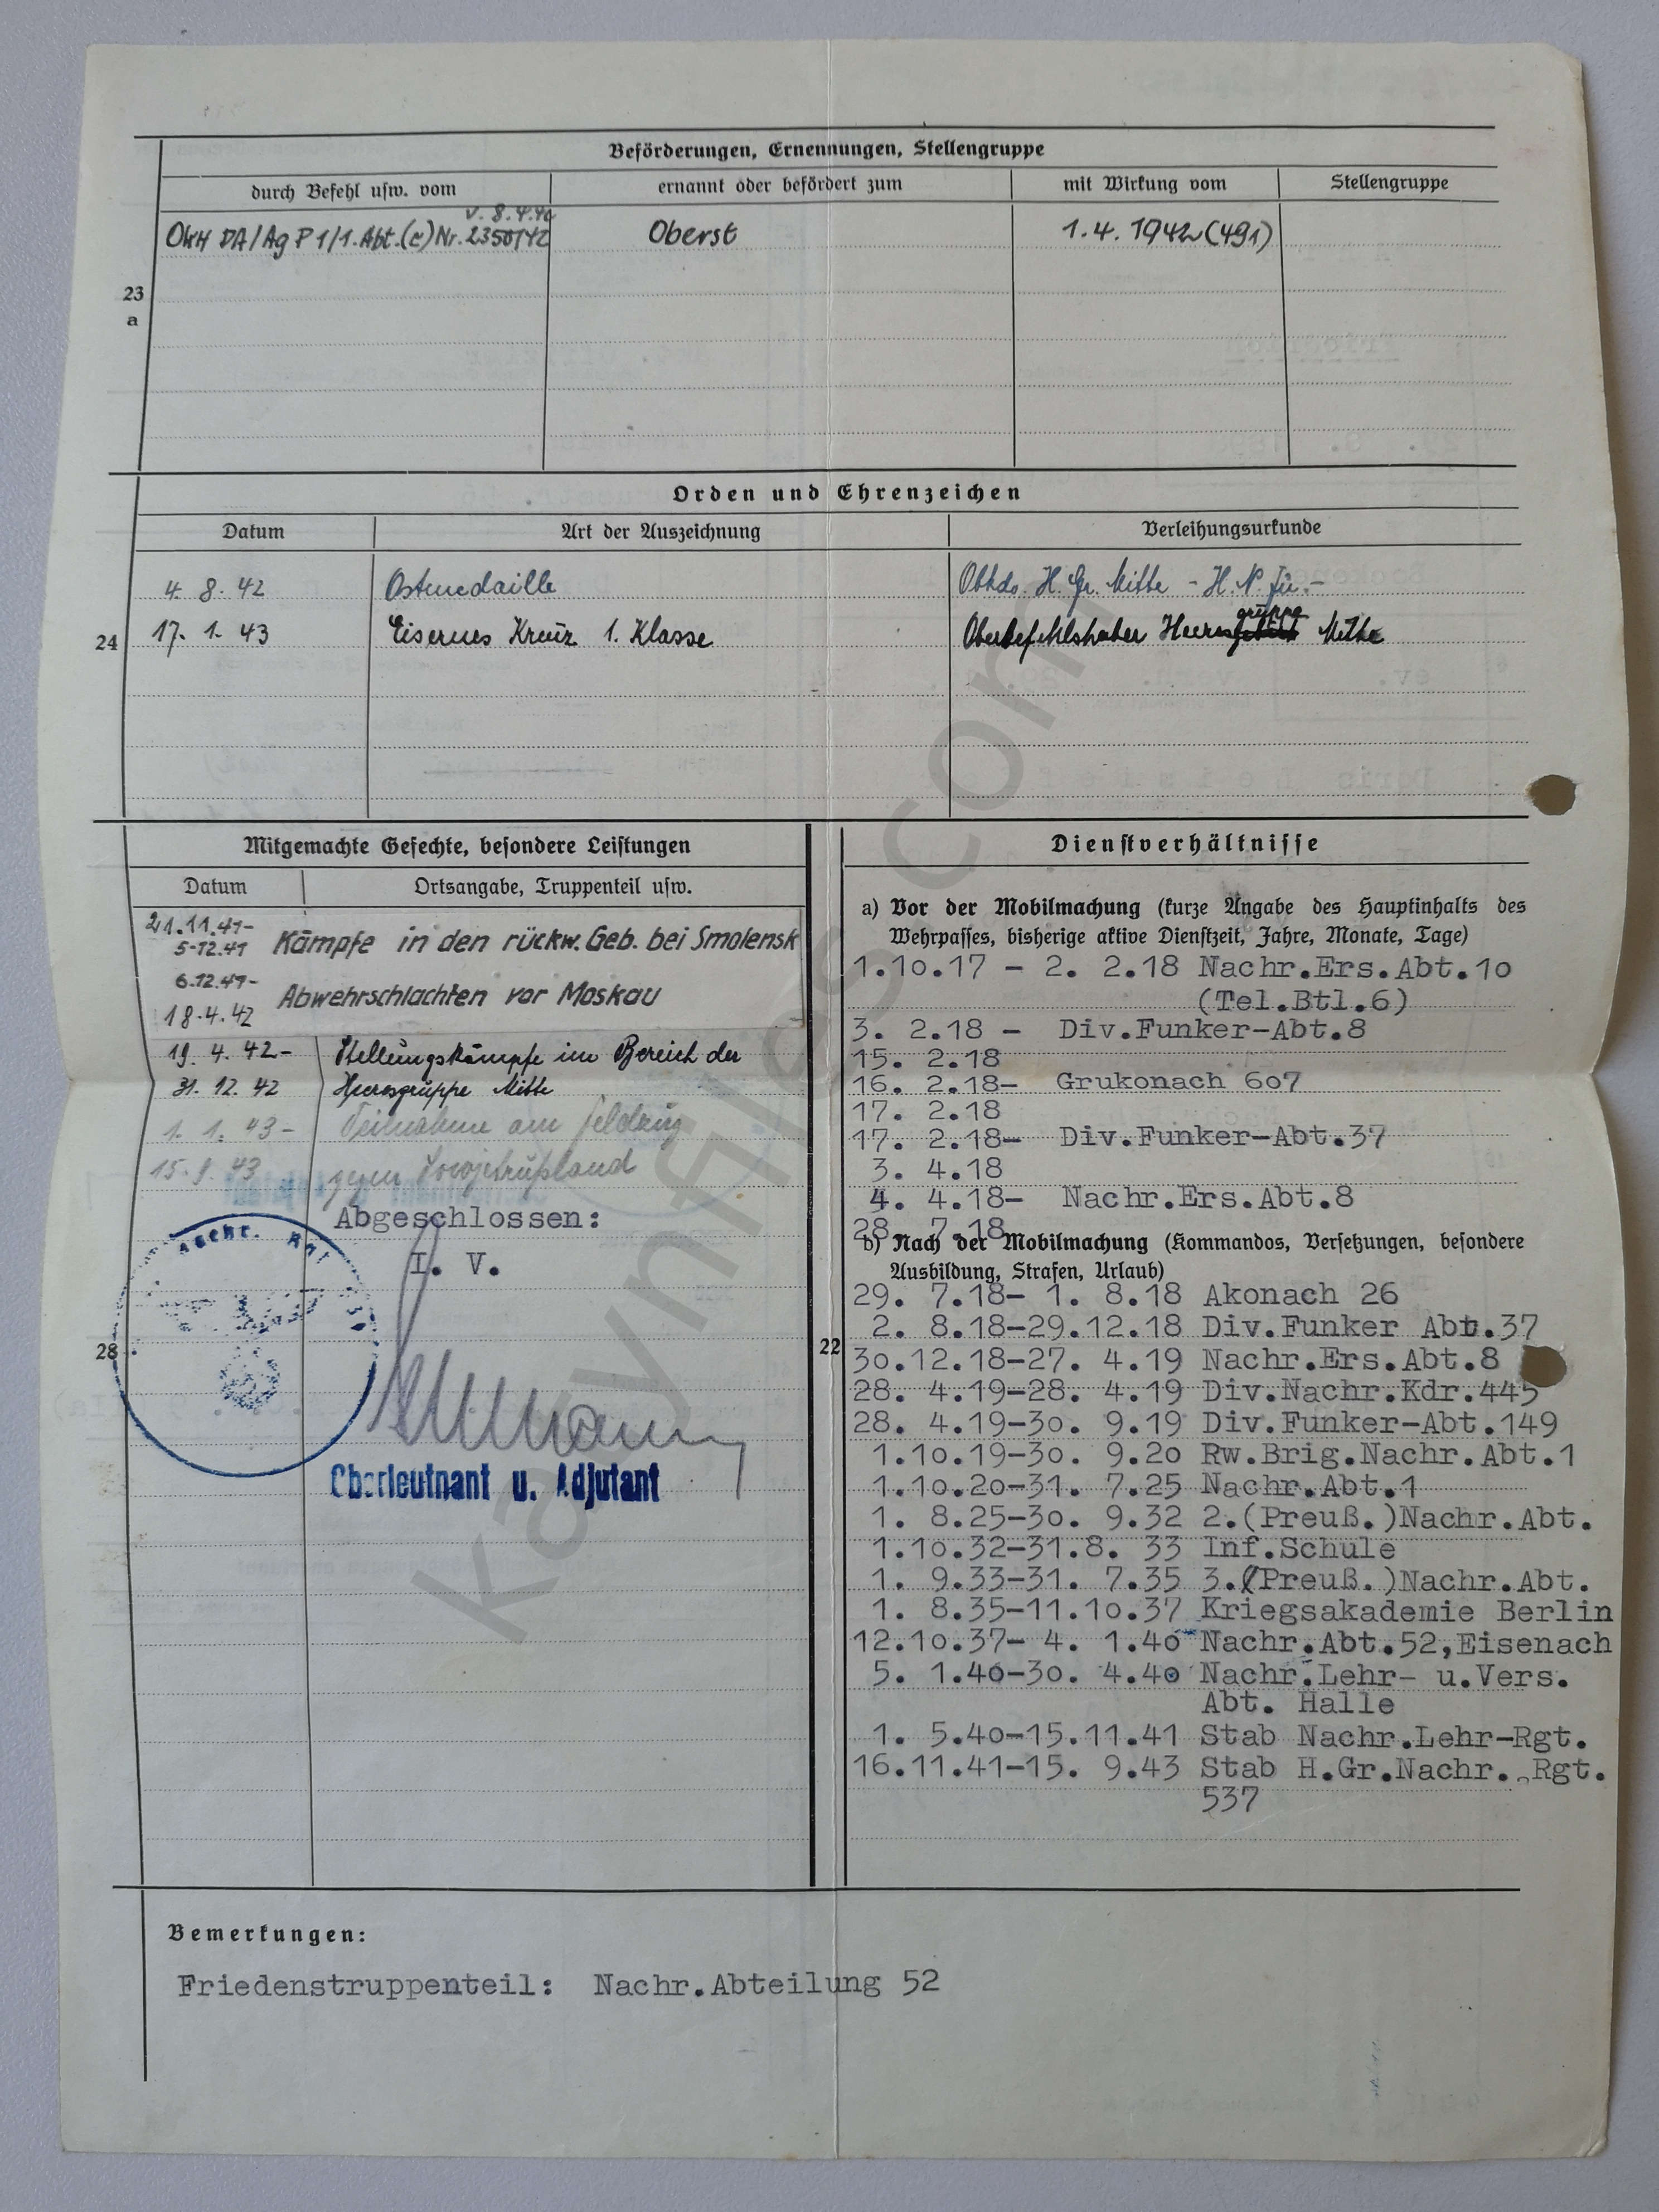 Beförderungen, Ernennungen, Stellengruppe
durch Befehl usw. vom
ernannt oder befördert zum
mit Wirkung vom
Stellengruppe
v. 8.4.42
OKH PA/Ag P 1/1. Abt. (c) Nr. 2350/42
Oberst
1.4.1942 (491)
23
a
Orden und Ehrenzeichen
Datum
Art der Auszeichnung
Verleihungsurkunde
4. 8. 42
Ostmedaille
Obkdo. H. Gr. Mitte - H. N. Fü. -
gruppe
17. 1. 43
Eisernes Kreuz 1. Klasse
Oberbefehlshaber Heeres Mitte
24
Mitgemachte Gefechte, besondere Leistungen
Datum
Ortsangabe, Truppenteil usw.
21.11.41-
5.12.41
Kämpfe in den rückw. Geb. bei Smolensk
6.12.41-
18.4.42
Abwehrschlachten vor Moskau
19. 4. 42-
Stellungskämpfe im Bereich der
31. 12. 42
Heeresgruppe Mitte
1. 1. 43-
Teilnahme am Feldzug
15.9.43
gegen Sowjetrußland
Abgeschlossen:
I. V.
Nachr.
28
Oberleutnant u. Adjutant
Dienstverhältnisse
a) Vor der Mobilmachung (kurze Angabe des Hauptinhalts des
Wehrpasses, bisherige aktive Dienstzeit, Jahre, Monate, Tage)
1.10.17 - 2. 2.18 Nachr.Ers.Abt.10
(Tel.Btl.6)
3. 2.18 - Div.Funker-Abt.8
15. 2.18
16. 2.18- Grukonach 607
17. 2.18
17. 2.18- Div.Funker-Abt.37
3. 4.18
4. 4.18- Nachr.Ers.Abt.8
28. 7.18
b) Nach der Mobilmachung (Kommandos, Versetzungen, besondere
Ausbildung, Strafen, Urlaub)
29. 7.18- 1. 8.18 Akonach 26
2. 8.18-29.12.18 Div.Funker Abt.37
22
30.12.18-27. 4.19 Nachr.Ers.Abt.8
28. 4.19-28. 4.19 Div.Nachr.Kdr.445
28. 4.19-30. 9.19 Div.Funker-Abt.149
1.10.19-30. 9.20 Rw.Brig.Nachr.Abt.1
1.10.20-31. 7.25 Nachr.Abt.1
1. 8.25-30. 9.32 2.(Preuß.)Nachr.Abt.
1.10.32-31.8. 33 Inf.Schule
1. 9.33-31. 7.35 3.(Preuß.)Nachr.Abt.
1. 8.35-11.10.37 Kriegsakademie Berlin
12.10.37- 4. 1.40 Nachr.Abt.52,Eisenach
5. 1.40-30. 4.40 Nachr.Lehr- u.Vers.
Abt. Halle
1. 5.40-15.11.41 Stab Nachr.Lehr-Rgt.
16.11.41-15. 9.43 Stab H.Gr.Nachr. Rgt.
537
Bemerkungen:
Friedenstruppenteil: Nachr.Abteilung 52
kaynfiles.com